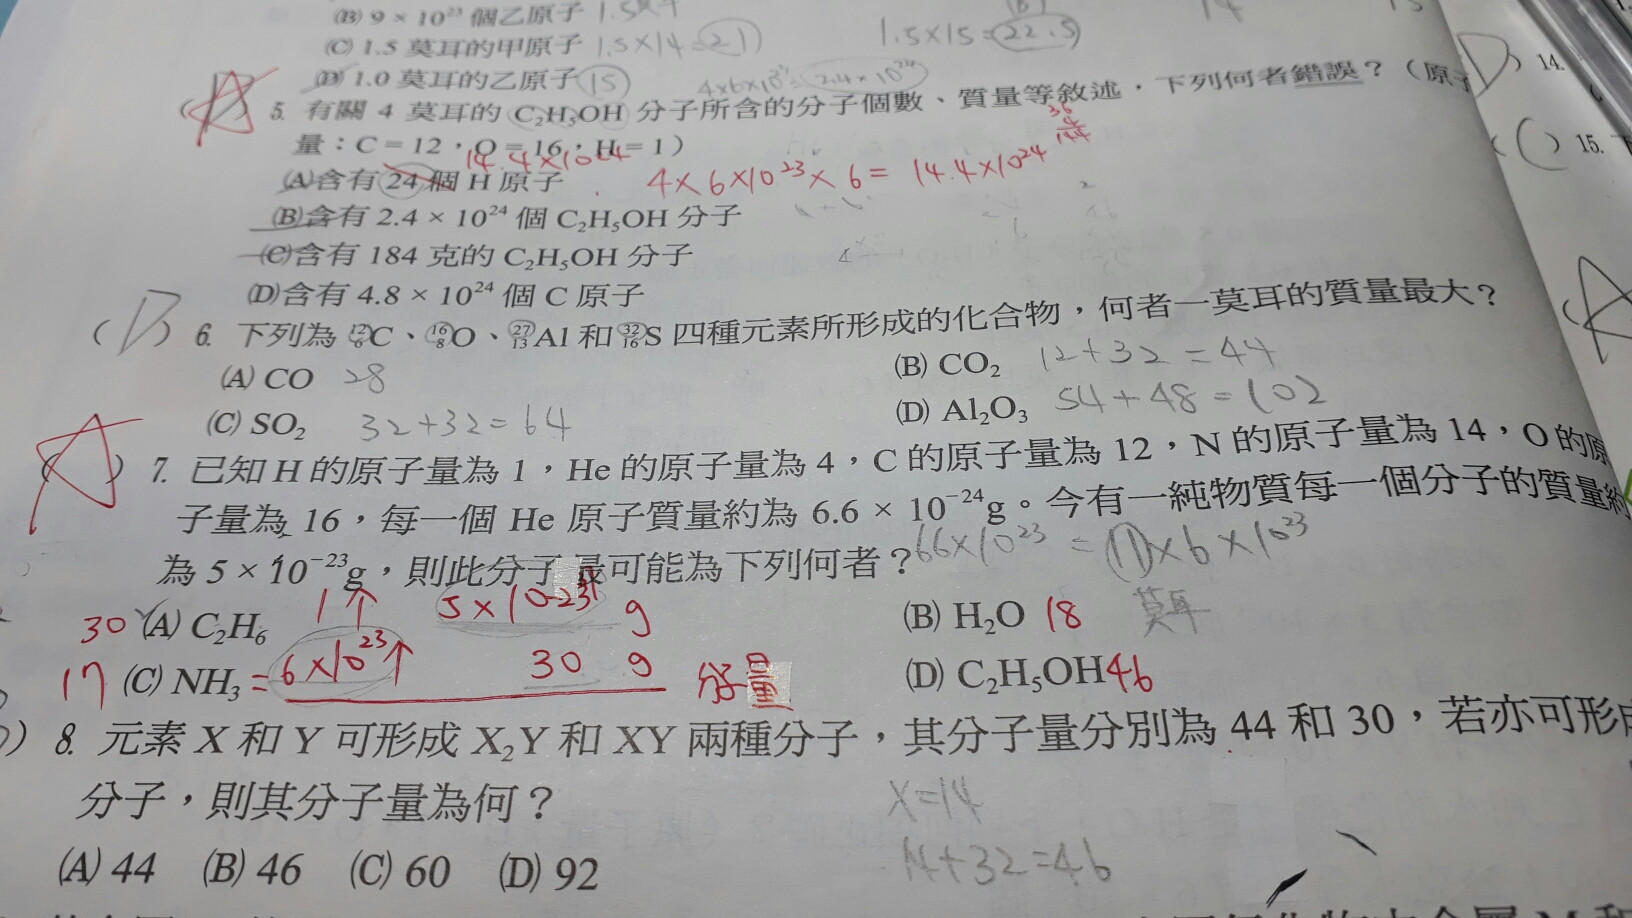 (B) 9 × 10²³ 個乙原子 1.5
(C) 1.5 莫耳的甲原子 1.5×14=21
1.5×15=22.5
14
15
(D) 1.0 莫耳的乙原子 15
2.4×10²⁴
14.
5. 有關 4 莫耳的 C₂H₅OH 分子所含的分子個數、質量等敘述，下列何者錯誤？（原子
量：C＝12，O＝16，H＝1）
36
4
144
15.
14.4×10²⁴
(A)含有 24 個 H 原子
4×6×10²³×6= 14.4×10²⁴
(B)含有 2.4 × 10²⁴ 個 C₂H₅OH 分子
(C)含有 184 克的 C₂H₅OH 分子
(D)含有 4.8 × 10²⁴ 個 C 原子
(D) 6. 下列為 ¹²₆C、¹⁶₈O、²⁷₁₃Al 和 ³²₁₆S 四種元素所形成的化合物，何者一莫耳的質量最大？
(A) CO 28
(B) CO₂ 12+32=44
(C) SO₂ 32+32=64
(D) Al₂O₃ 54+48=102
( ) 7. 已知 H 的原子量為 1，He 的原子量為 4，C 的原子量為 12，N 的原子量為 14，O 的原
子量為 16，每一個 He 原子質量約為 6.6 × 10⁻²⁴g。今有一純物質每一個分子的質量約
為 5 × 10⁻²³g，則此分子最可能為下列何者？
66×10²³ = 17×6×10²³
1個 5×10⁻²³ g
莫耳
30 (A) C₂H₆
(B) H₂O 18
17 (C) NH₃ = 6×10²³個 30 g 分子量
(D) C₂H₅OH 46
) 8. 元素 X 和 Y 可形成 X₂Y 和 XY 兩種分子，其分子量分別為 44 和 30，若亦可形成
分子，則其分子量為何？
X=14
(A) 44 (B) 46 (C) 60 (D) 92
14+32=46